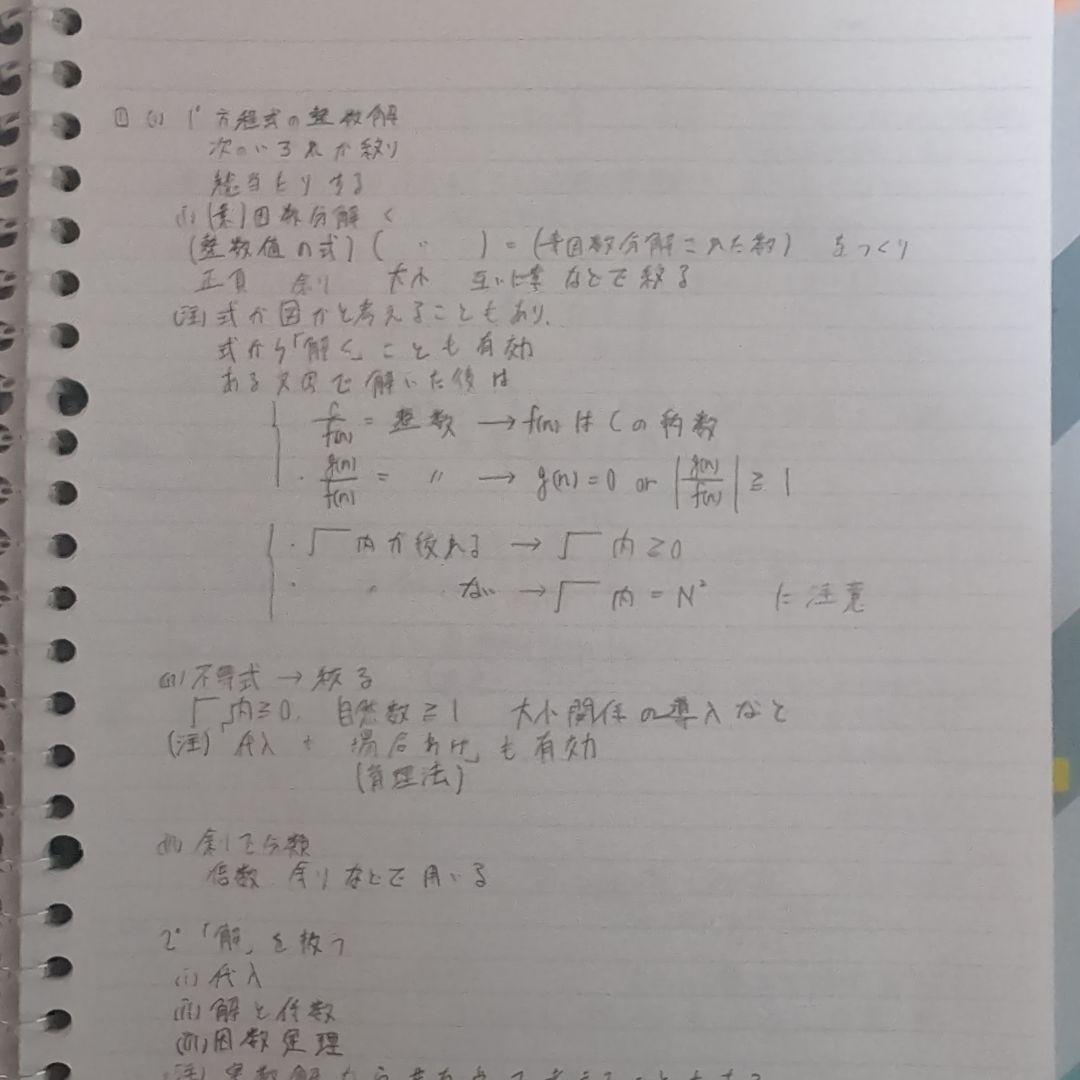 1 (1) 1° 方程式の整数解
次のいづれか絞り
総当たりする
(i) (素)因数分解く
(整数値の式) ( 〃 ) = (素因数分解された数) をつくり
正負 余り 大小 互いに素 などで絞る
(注) 式か因かと考えることもあり、
式から「解く」ことも有効
ある文字で解いた後は
・ C/f(n) = 整数 → f(n) は C の約数
・ g(n)/f(n) = 〃 → g(n)=0 or |g(n)/f(n)| ≧ 1
・√ 内が絞れる → √ 内 ≧0
・ 〃 ない → √ 内 = N² に注意
(ii) 不等式 → 絞る
√ 内≧0, 自然数≧1 大小関係の導入など
(注)「代入 + 場合わけ」も有効
(背理法)
(iii) 余りで分類
倍数 余りなどで用いる
2°「解」を扱う
(i) 代入
(ii) 解と係数
(iii) 因数定理
(注) 整数解から